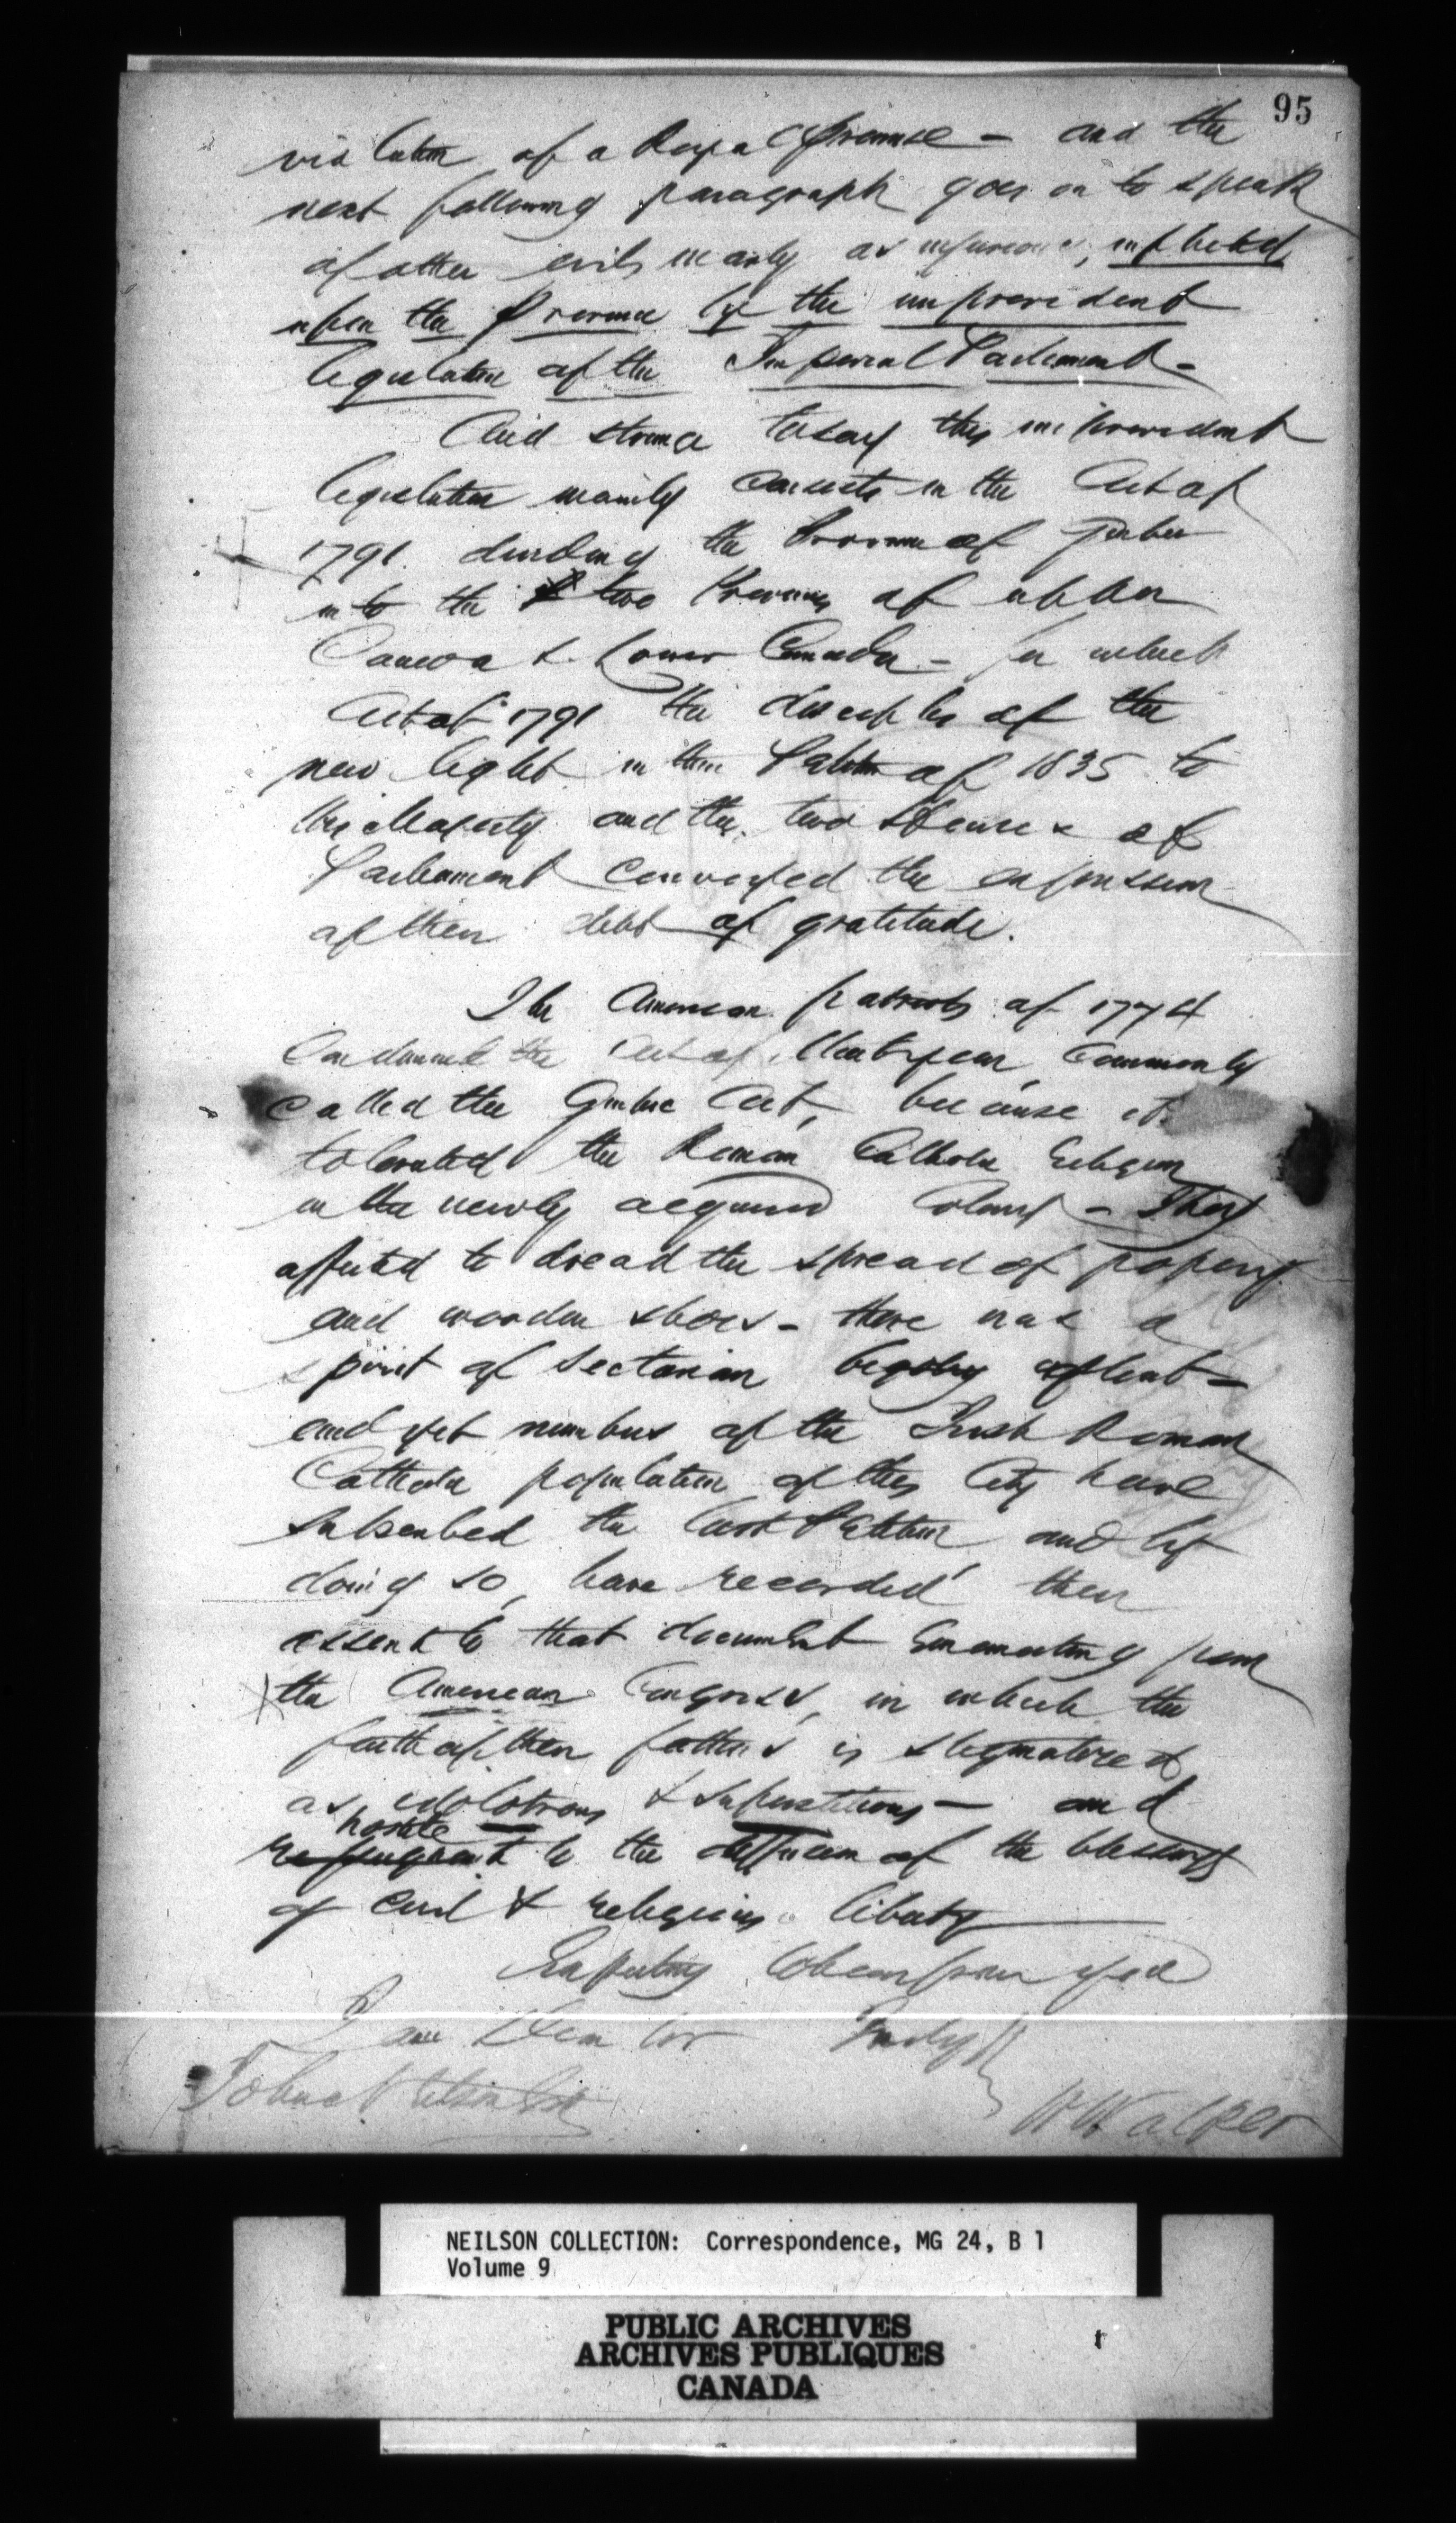 95
violation of a Royal promise - and the
next following paragraph goes on to speak
of other evils mainly as injurious, inflicted
upon the Province by the improvident
legislation of the Imperial Parliament -
And strange to say this improvident
legislation mainly consists in the Act of
1791. dividing the Province of Quebec
into the two Provinces of upper
Canada & Lower Canada - for which
Act of 1791 the disciples of the
new light in their Petition of 1835 to
His Majesty and the two Houses of
Parliament conveyed the expression
of their debt of gratitude.
The American patriots of 1774
Condemned the Act of that year, commonly
called the Quebec Act, because it
tolerated the Roman Catholic Religion
in the newly acquired Colony - They
affected to dread the spread of popery
and wooden shoes - there was a
spirit of sectarian bigotry afloat -
and yet numbers of the Irish Roman
Catholic population of this City have
subscribed the last Petition and by
doing so, have recorded their
assent to that document emanating from
the American Congress, in which the
faith of their fathers is stigmatized
as idolatrous & superstitious - and
hostile
repugnant to the diffusion of the blessings
of civil & religious liberty
Expecting to hear from you
I am Dear Sir Truly
John Neilson Esq
W Walker
NEILSON COLLECTION: Correspondence, MG 24, B 1
Volume 9
PUBLIC ARCHIVES
ARCHIVES PUBLIQUES
CANADA